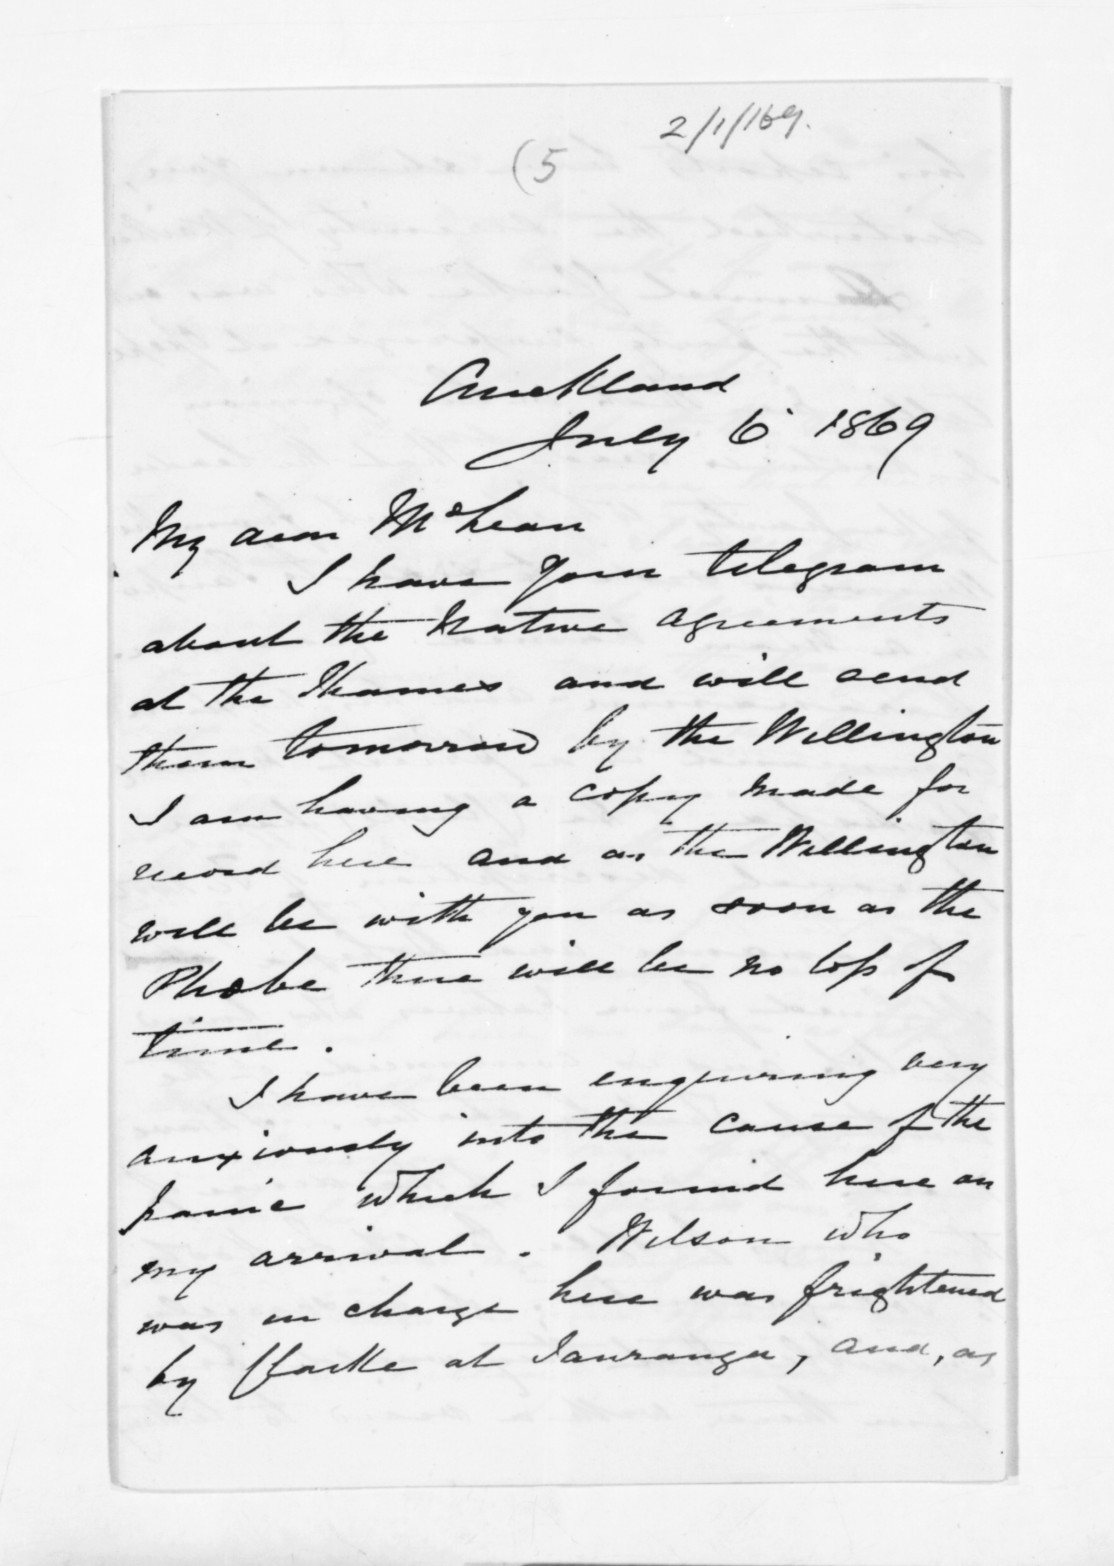 2/1/169.
(5
Auckland
July 6 1869
My dear McLean
I have your telegram
about the Native agreements
at the Thames and will send
them tomorrow by the Wellington
I am having a copy made for
record here and as the Wellington
will be with you as soon as the
Phoebe there will be no loss of
time.
I have been enquiring very
anxiously into the cause of the
panic which I found here on
my arrival. Wilson who
was in charge here was frightened
by Clarke at Tauranga, and, as